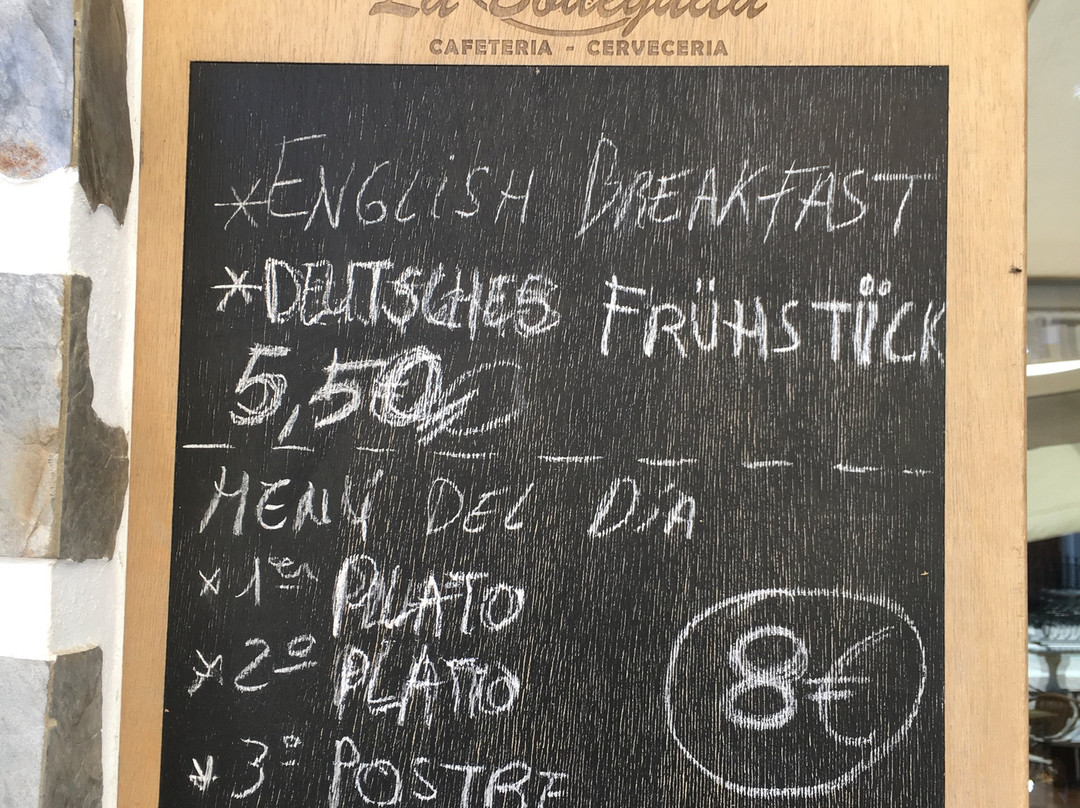 La Bodeguita
CAFETERIA - CERVECERIA
*ENGLISH BREAKFAST
*DEUTSCHES FRÜHSTÜCK
5,50€
MENÚ DEL DÍA
*1er PLATO
*2º PLATO
8€
*3º POSTRE